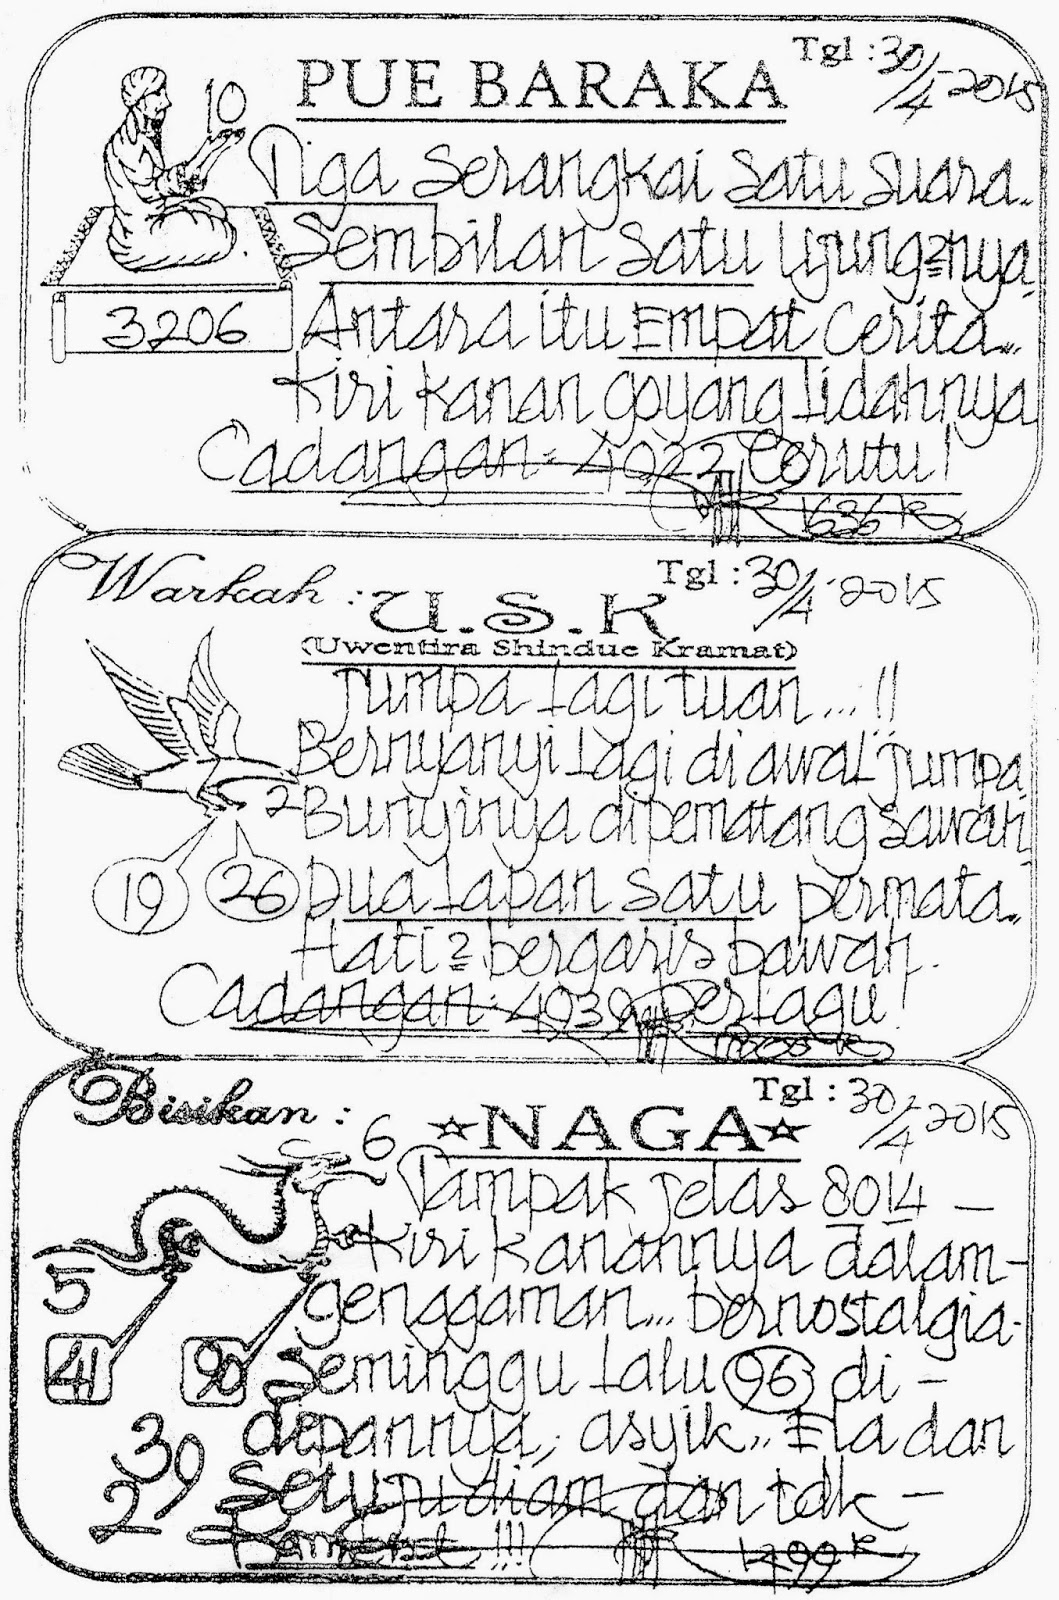 Tgl : 30/4-2015
PUE BARAKA
10
Tiga Serangkai Satu Suara..
Sembilan Satu Ujung2nya.
3206
Antara itu Empat Cerita...
Kiri Kanan Goyang Lidahnya
Cadangan = 4022 Cerutu!
1636 k
Warkah : U.S.K
Tgl : 30/4-2015
(Uwentira Shindue Kramat)
Jumpa Lagi Tuan....!!
Bernyanyi Lagi di awal "jumpa
2 Bunyinya dipematang sawah"
19 26 Dua Lapan Satu permata..
Hati2 bergaris bawah.
Cadangan : 4939 Berlagu!
Bisikan : NAGA
Tgl : 30/4-2015
6
Tampak Jelas 8014 -
Kiri Kanannya dalam-
5
genggaman... bernostalgia-
41 90 Seminggu Lalu 96 di -
depannya, asyik.. Ela dan
39
Setuju diam dan tdk -
2
!!!
1499 k